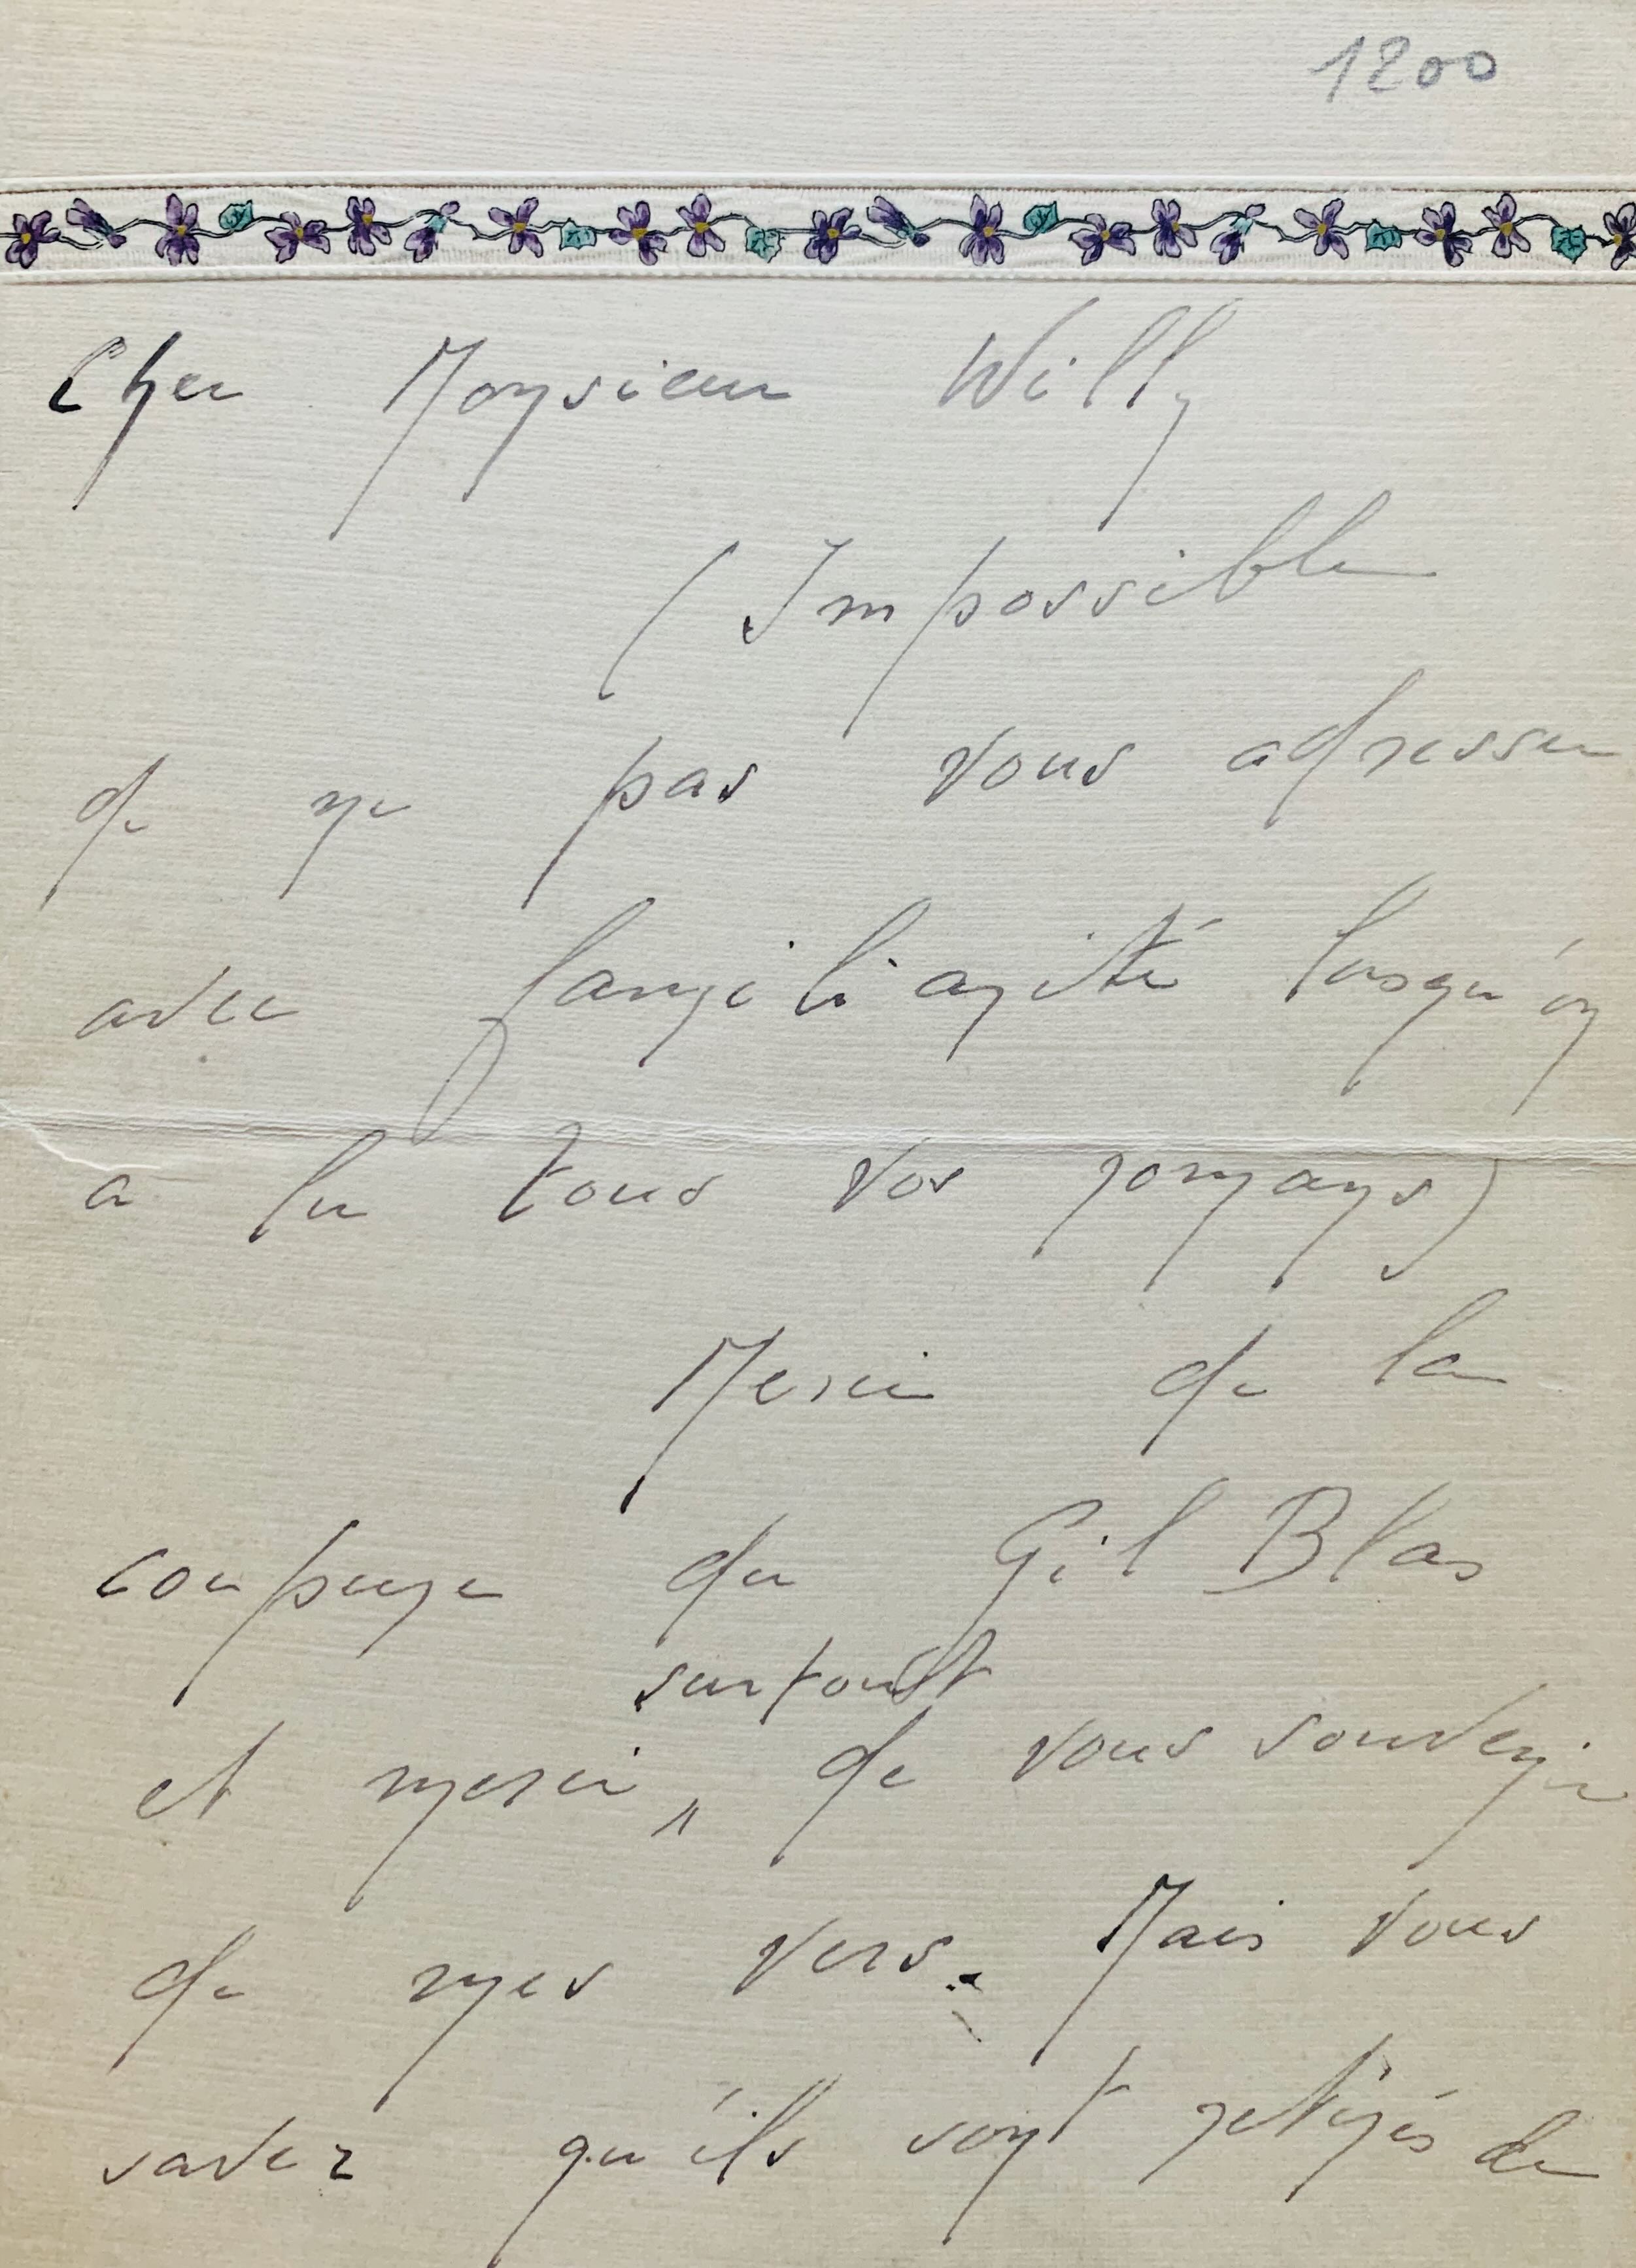 1200
Cher Monsieur Willy
(Impossible
de ne pas vous adresser
avec familiarité lorsqu'on
a lu tous vos romans)
Merci de la
coupure du Gil Blas
surtout
et merci, de vous souvenir
de mes vers. Mais vous
savez qu'ils sont retirés de